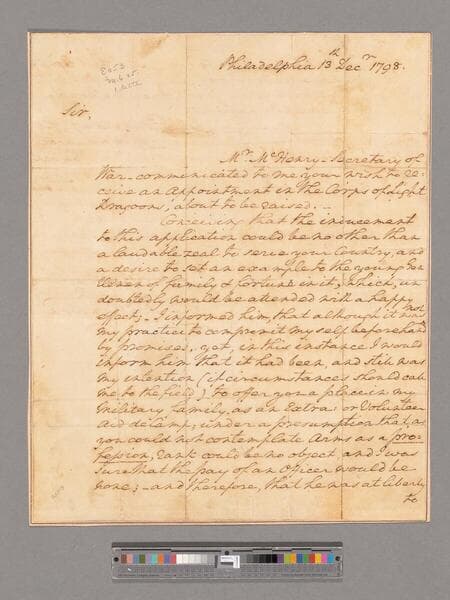 Philadelphia 13th Decr 1798.
Sir,
Mr McHenry - Secretary of
War - communicated to me your wish to re-
ceive an appointment in the Corps of light
Dragoons, about to be raised. -
Conceiving that the inducement
to this application could be no other than
a laudable zeal to serve your Country, and
a desire to set an example to the young Gen
tlemen of family & fortune in it; which, un
doubtedly would be attended with a happy
effect; - I informed him that although it was not
my practice to compromit myself beforehand
by promises, yet in this instance I would
inform him that it had been, and still was
my intention (if circumstances should call
me to the field) to offer you a place in my
Military family, as an Extra: or Volunteer
Aid de camp; under a presumption that, as
you could not contemplate Arms as a pro-
fession, Rank could be no object, and I was
sure that the pay of an Officer would be
none; - and therefore, that he was at liberty
to